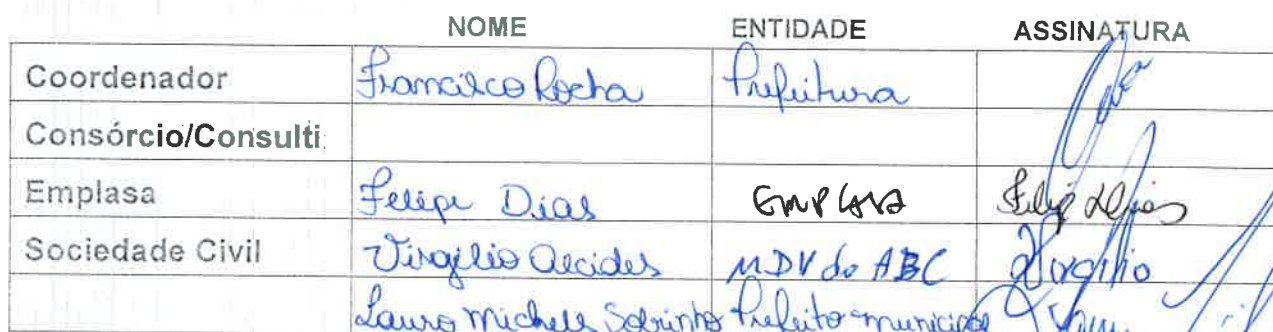 NOME ENTIDADE ASSINATURA
Coordenador Francisco Rocha Prefeitura
Consórcio/Consulti
Emplasa Felipe Dias EMPLASA Felipe Dias
Sociedade Civil Virgílio Alcides MDV do ABC Virgílio
Lauro Michels Sobrinho Prefeito municipal